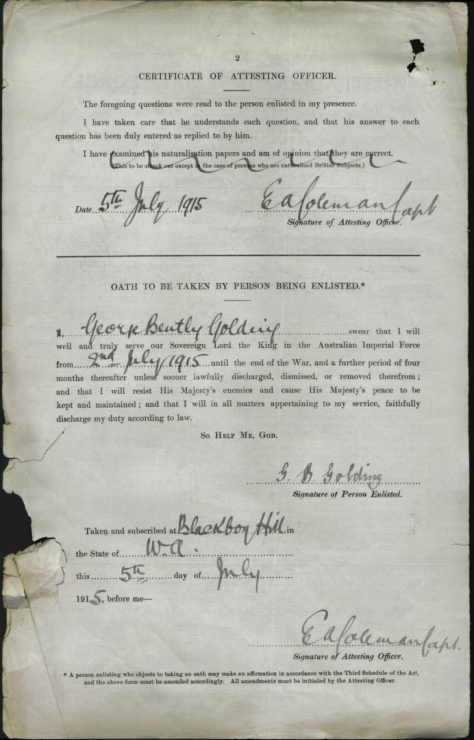 2
CERTIFICATE OF ATTESTING OFFICER.
The foregoing questions were read to the person enlisted in my presence.
I have taken care that he understands each question, and that his answer to each
question has been duly entered as replied to by him.
I have examined his naturalisation papers and am of opinion that they are correct.
(This to be struck out except in the case of persons who are naturalised British Subjects.)
Date 5th July 1915 E A Coleman Capt
Signature of Attesting Officer.
OATH TO BE TAKEN BY PERSON BEING ENLISTED.*
I, George Bently Golding swear that I will
well and truly serve our Sovereign Lord the King in the Australian Imperial Force
from 2nd July 1915 until the end of the War, and a further period of four
months thereafter unless sooner lawfully discharged, dismissed, or removed therefrom;
and that I will resist His Majesty's enemies and cause His Majesty's peace to be
kept and maintained; and that I will in all matters appertaining to my service, faithfully
discharge my duty according to law.
SO HELP ME, GOD.
G. B Golding
Signature of Person Enlisted.
Taken and subscribed at Blackboy Hill in
the State of W.A.
this 5th day of July
1915, before me—
E A Coleman Capt.
Signature of Attesting Officer.
* A person enlisting who objects to taking an oath may make an affirmation in accordance with the Third Schedule of the Act,
and the above form must be amended accordingly. All amendments must be initialed by the Attesting Officer.